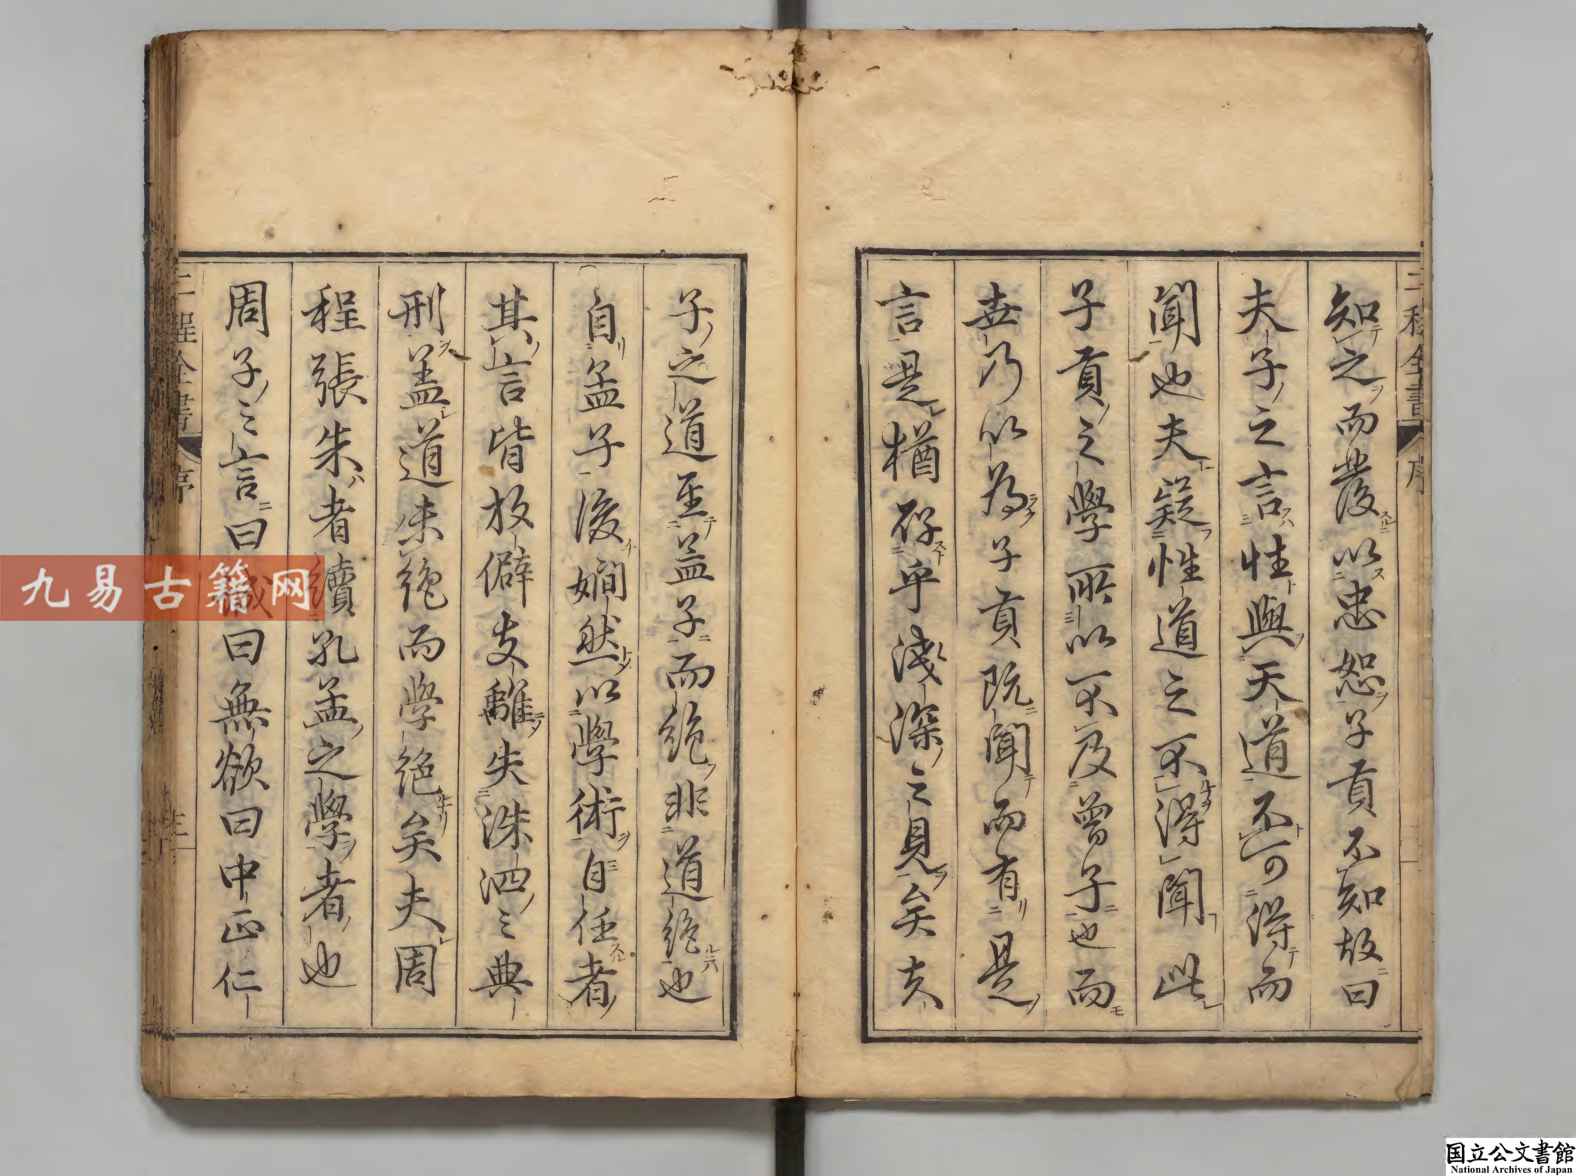 知之而發以忠恕子貢不知故曰
夫子之言性與天道不可得而
聞也夫疑性道之不得聞此
子貢之學所以不及曾子也而
世乃以為子貢既聞而有是
言是猶存乎淺深之見矣夫
子之道至孟子而絶非道絶也
自孟子後嫺然以學術自任者
其言皆放僻支離失洙泗之典
刑盖道未絶而學絶矣夫周
程張朱者續孔孟之學者也
周子之言曰誠曰無欲曰中正仁
二程全書
序
二程全書
序
九易古籍网
国立公文書館
National Archives of Japan